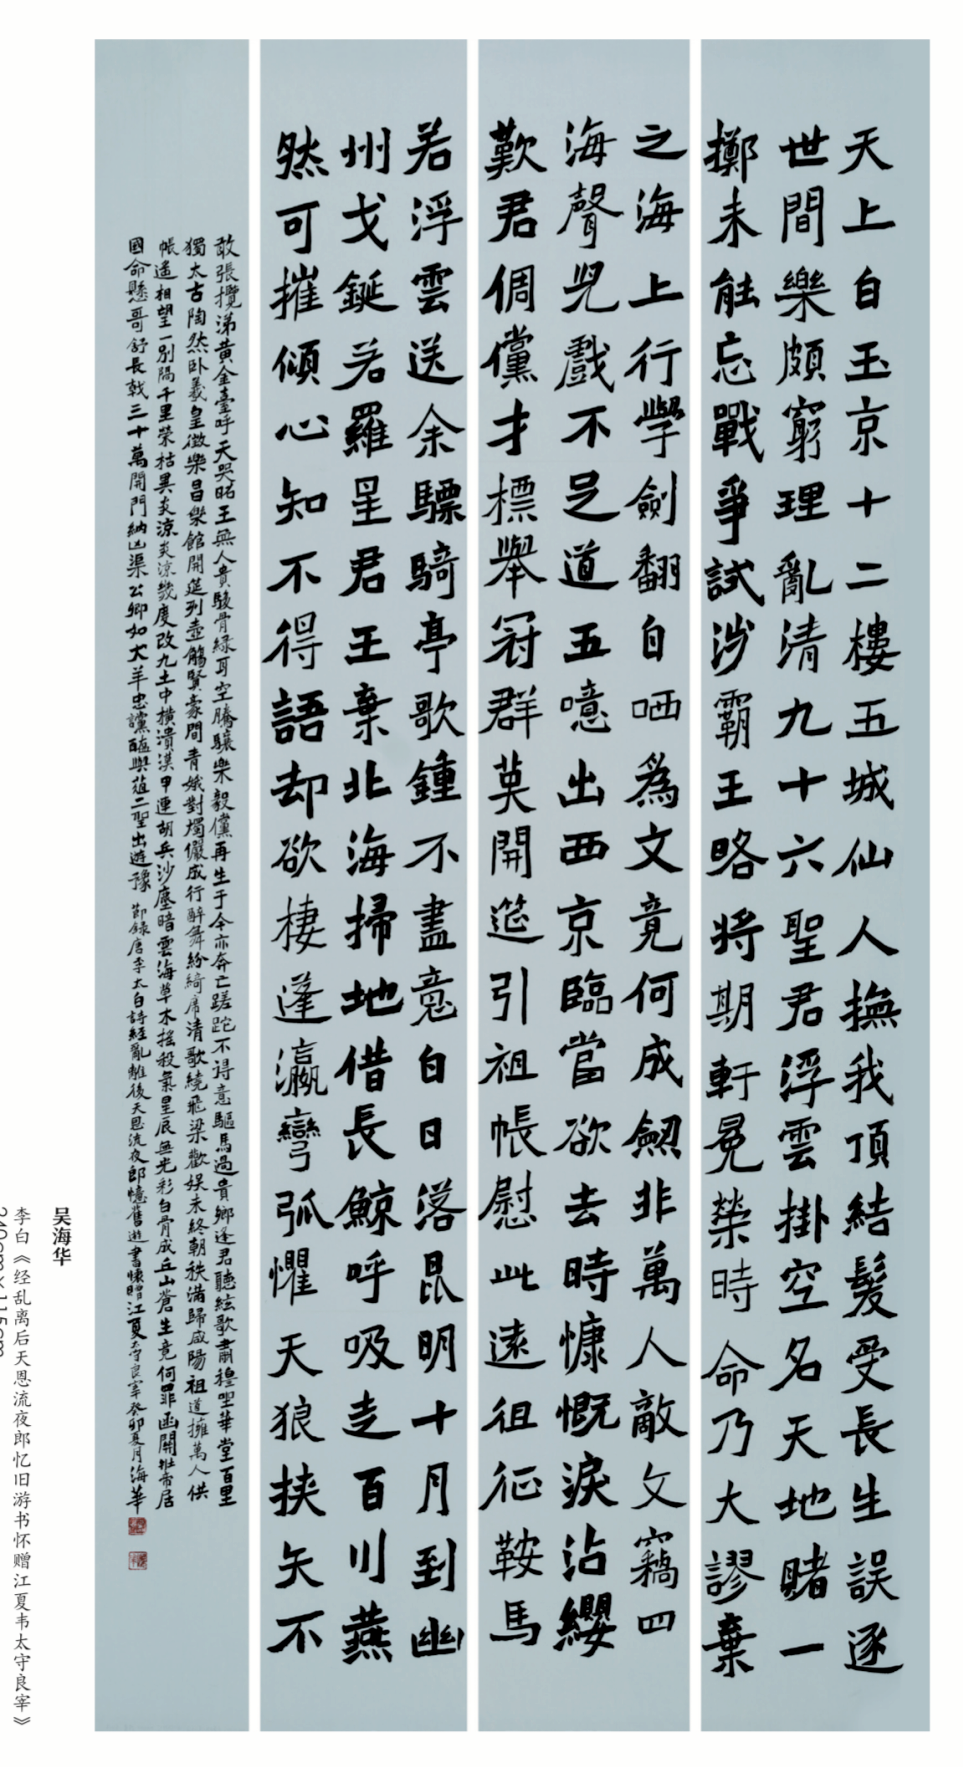 天上白玉京十二樓五城仙人撫我頂結髮受長生誤逐
世間樂頗窮理亂清九十六聖君浮雲掛空名天地賭一
擲未能忘戰爭試涉霸王略將期軒冕榮時命乃大謬棄
之海上行學劍翻自哂為文竟何成劒非萬人敵文竊四
海聲兒戲不足道五噫出西京臨當欲去時慷慨淚沾纓
歎君倜儻才標舉冠群英開筵引祖帳慰此遠徂征鞍馬
若浮雲送余驃騎亭歌鍾不盡意白日落昆明十月到幽
州戈鋋若羅星君王棄北海掃地借長鯨呼吸走百川燕
然可摧傾心知不得語却欲棲蓬瀛彎弧懼天狼挾矢不
敢張攬涕黃金臺呼天哭昭王無人貴駿骨綠耳空騰驤樂毅儻再生于今亦奔亡蹉跎不得意驅馬過貴鄉逢君聽絃歌肅穆坐華堂百里
獨太古陶然臥羲皇徵樂昌樂館開筵列壺觴賢豪間青娥對燭儼成行醉舞紛綺席清歌繞飛梁歡娛未終朝秩滿歸咸陽祖道擁萬人供
帳遙相望一別隔千里榮枯異炎涼炎涼幾度改九土中橫潰漢甲連胡兵沙塵暗雲海草木搖殺氣星辰無光彩白骨成丘山蒼生竟何罪函關壯帝居
國命懸哥舒長戟三十萬開門納凶渠公卿如犬羊忠讜醢與菹二聖出遊豫 節錄唐李太白詩經亂離後天恩流夜郎憶舊遊書懷贈江夏韋太守良宰癸卯夏月海華
吴海华
李白《经乱离后天恩流夜郎忆旧游书怀赠江夏韦太守良宰》